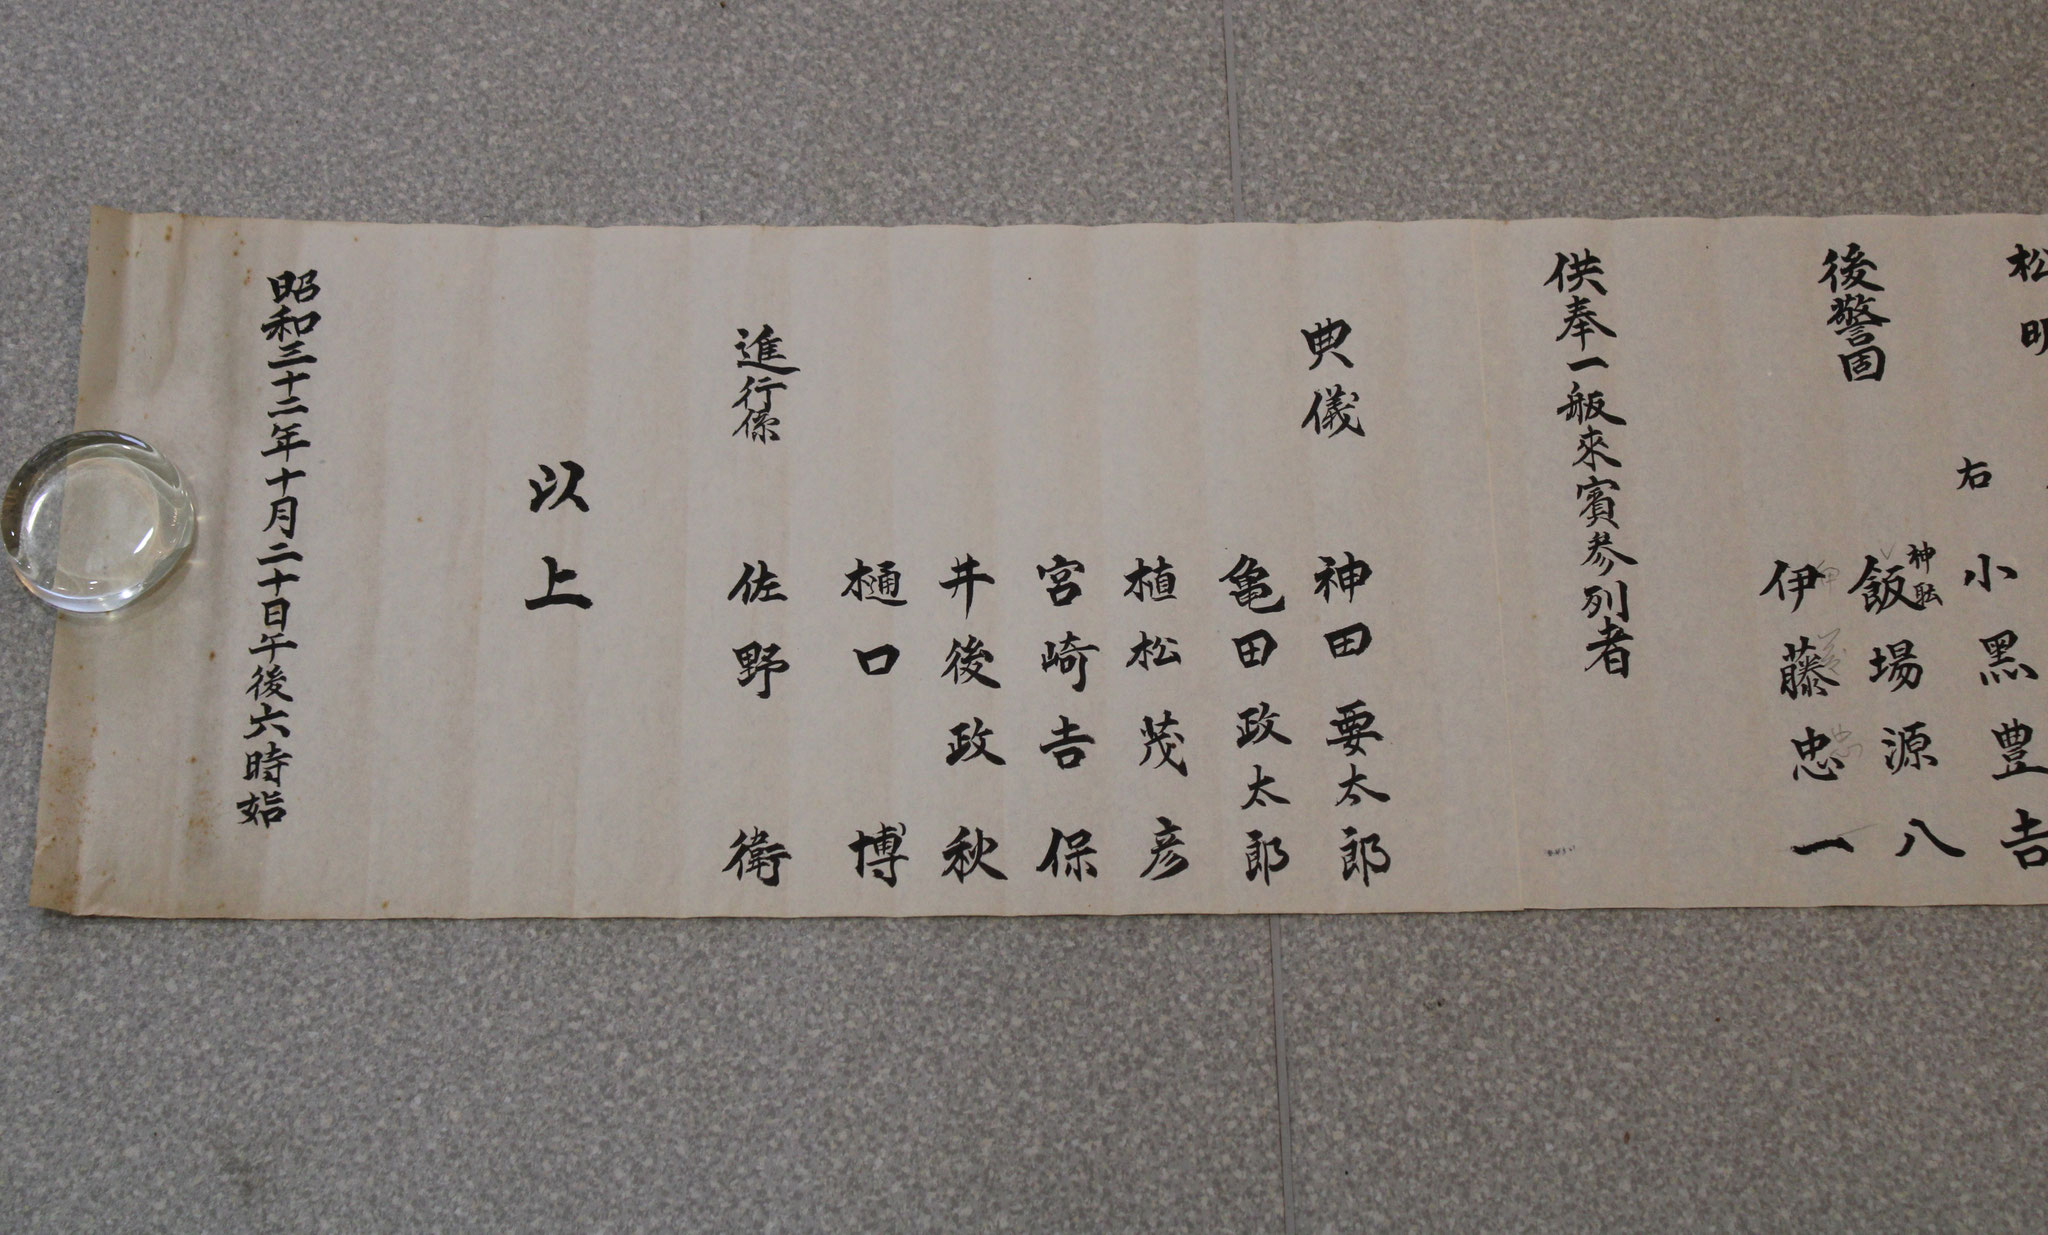 松明
右 小黑豊吉
後警固 神職 飯場源八
伊藤忠一
供奉一般來賓参列者
典儀 神田要太郎
亀田政太郎
植松茂彦
宮崎吉保
井後政秋
樋口博
進行係 佐野衛
以上
昭和三十二年十月二十日午後六時始